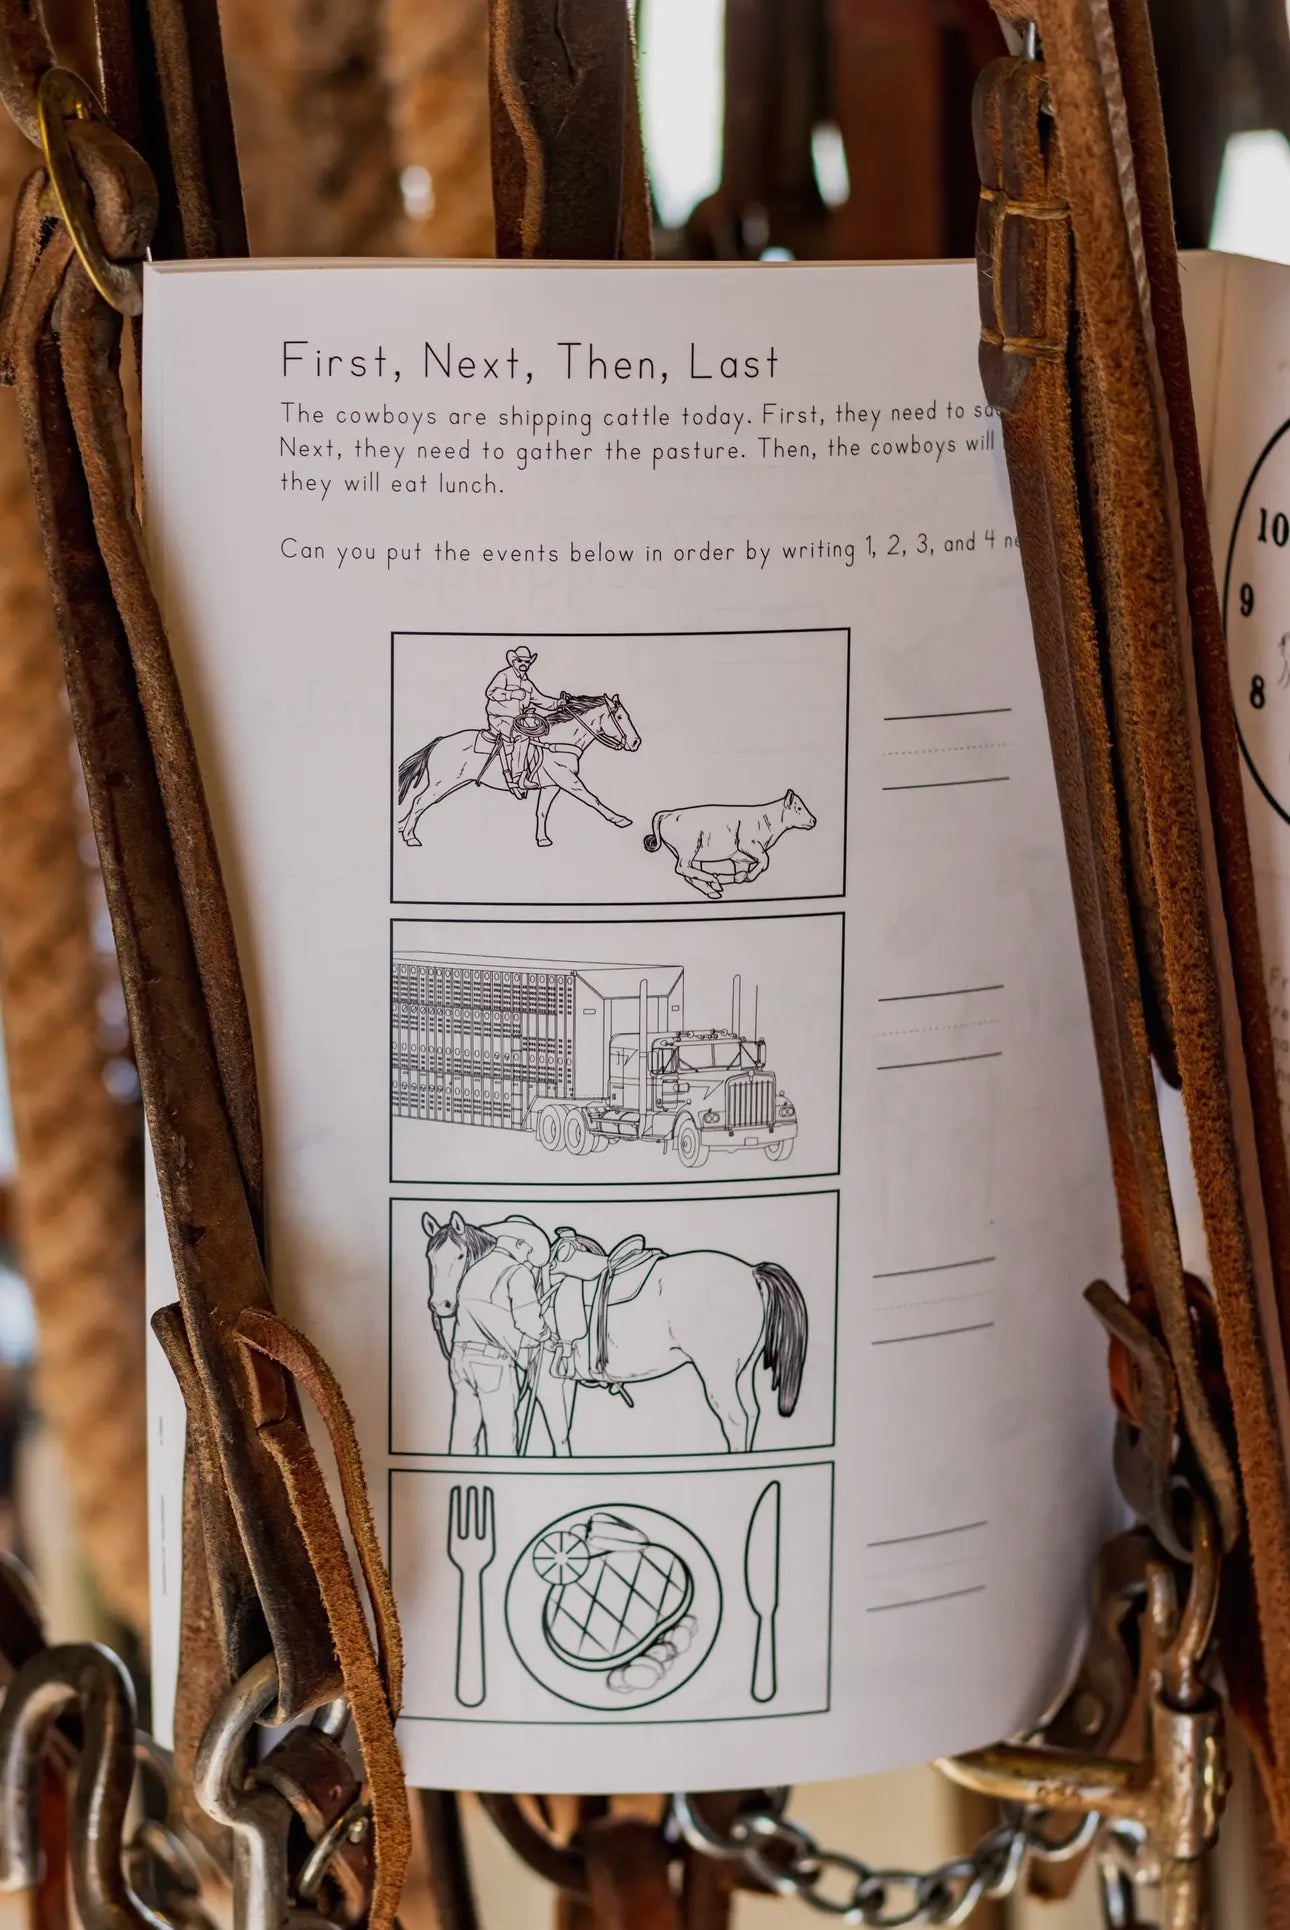 First, Next, Then, Last
The cowboys are shipping cattle today. First, they need to
Next, they need to gather the pasture. Then, the cowboys will
they will eat lunch.
Can you put the events below in order by writing 1, 2, 3, and 4
10
9
8